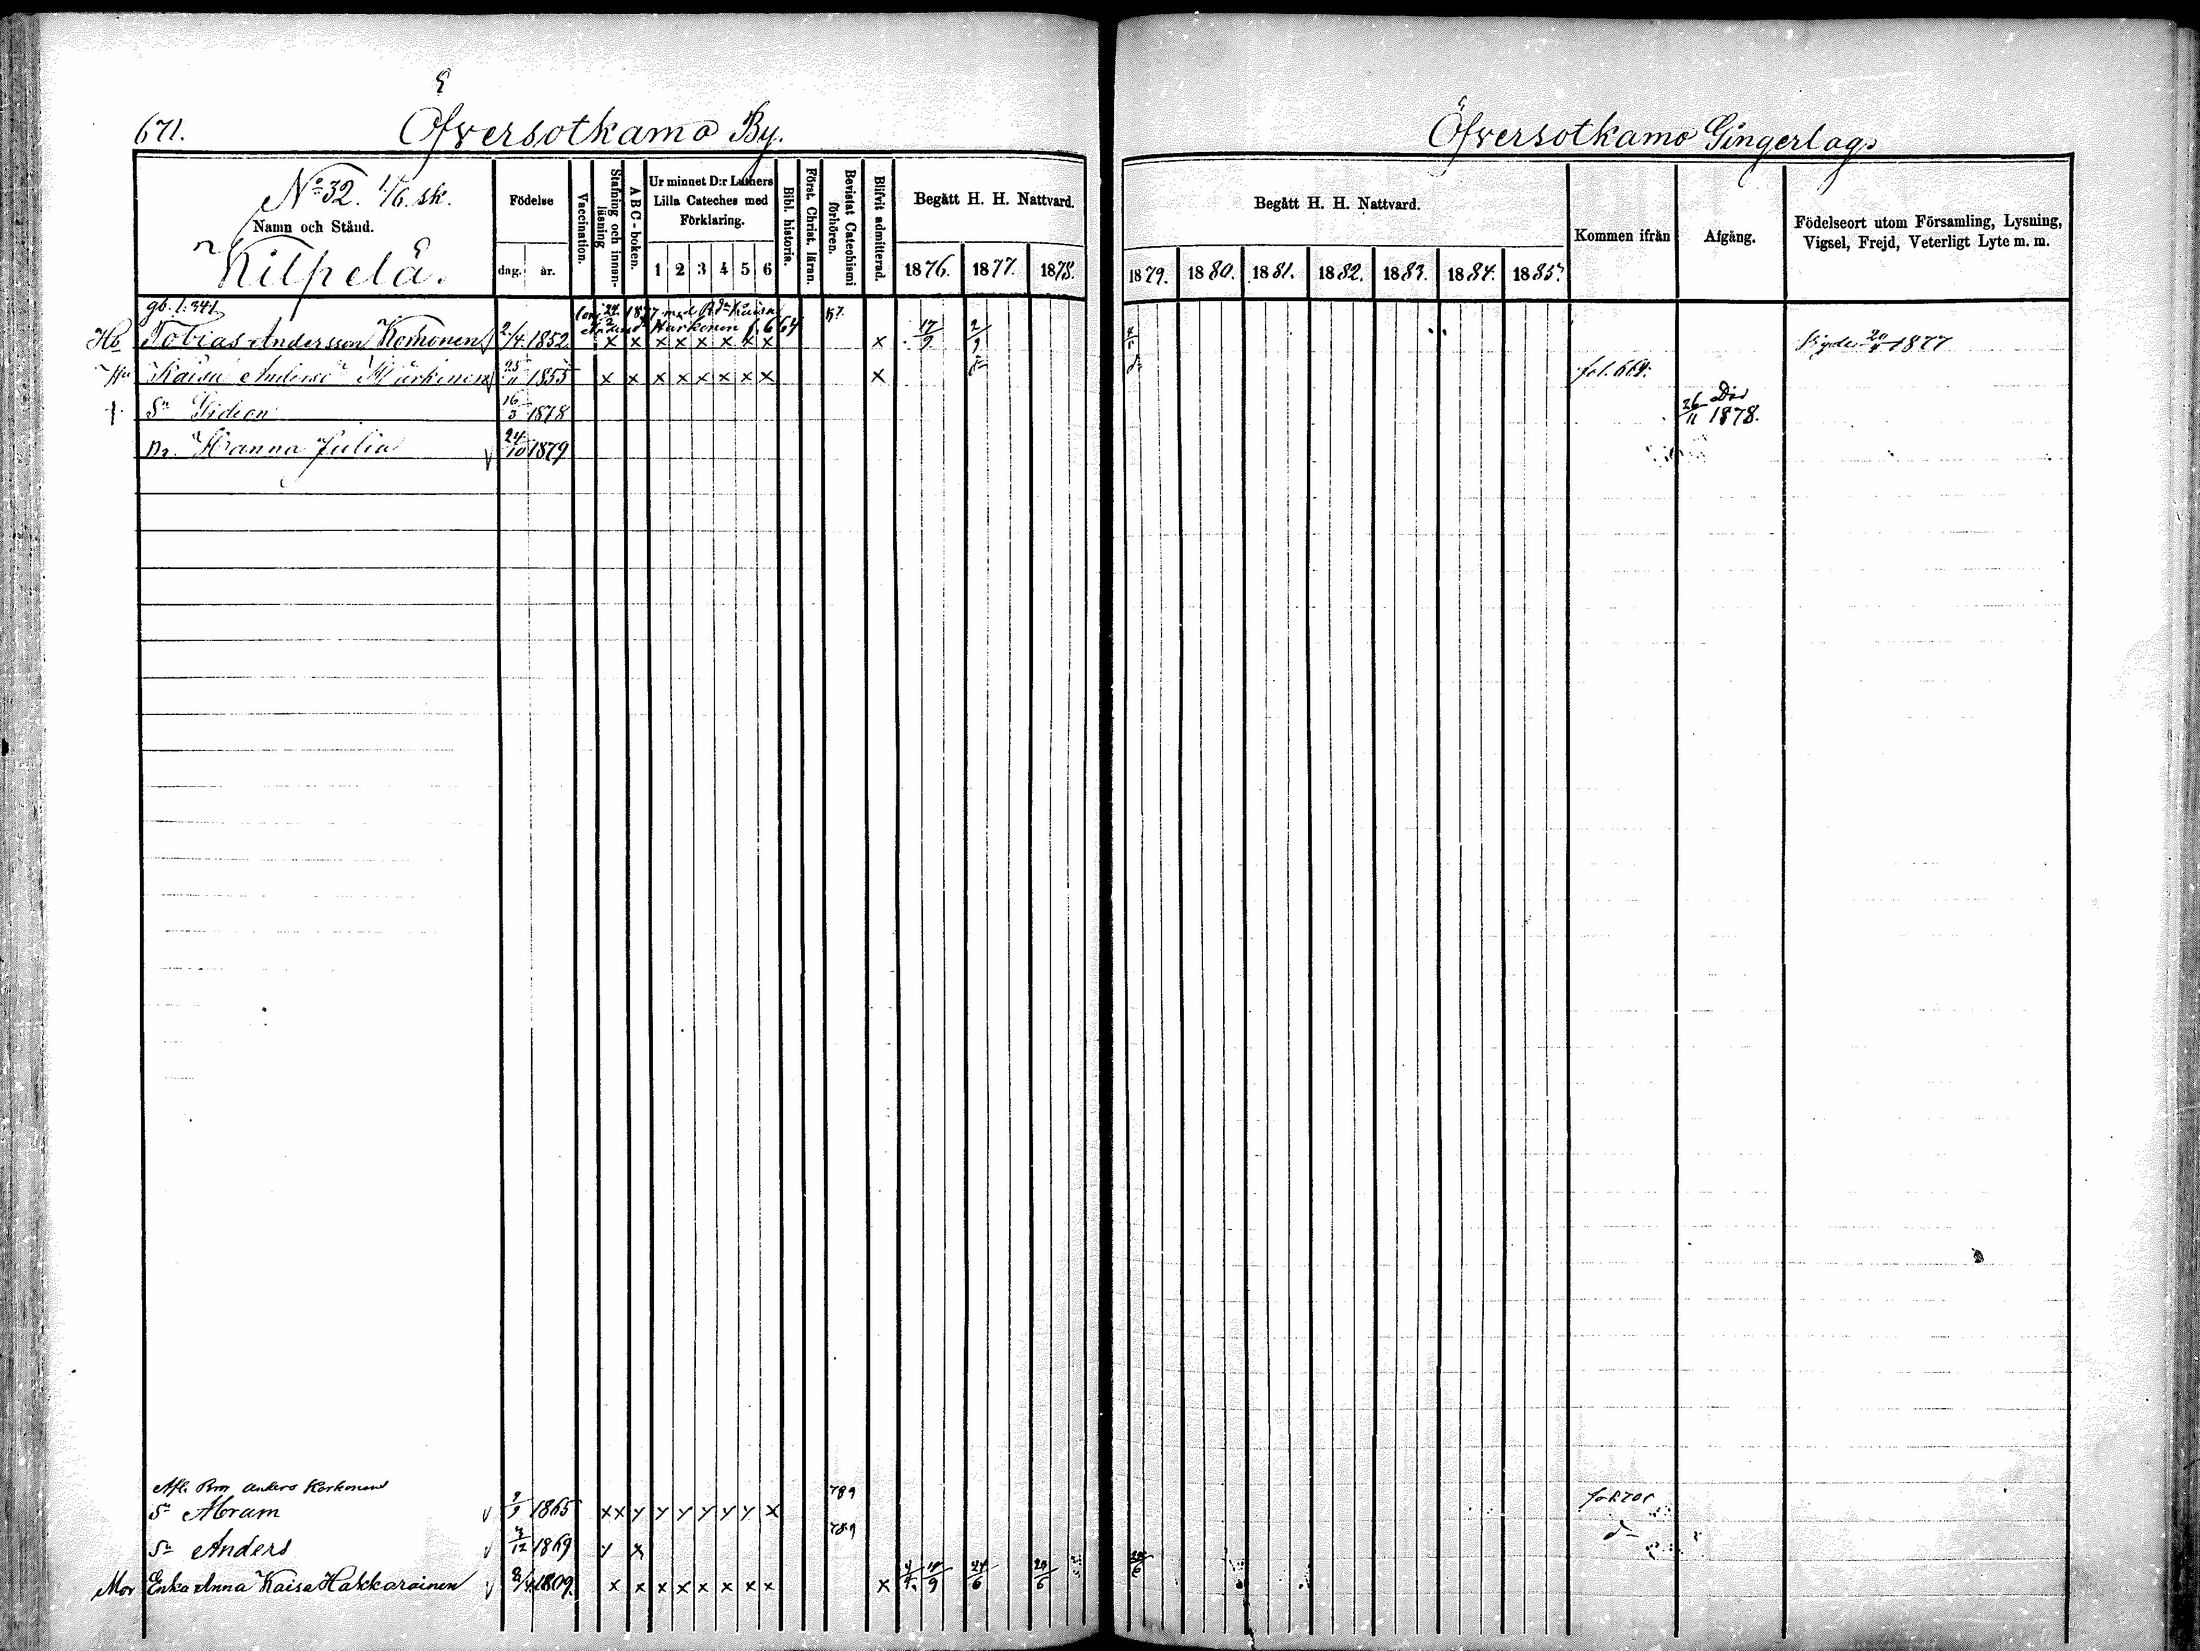 671.
Öfversotkamo By.
Öfversotkamo Gingerlags
No 32. 1/6. sk.
Namn och Stånd.
Kilpelä.
Födelse
dag. år.
Vaccination.
Stafning och innenläsning
ABC-boken.
Ur minnet D:r Luthers Lilla Cateches med Förklaring.
1 2 3 4 5 6
Bibl. historia.
Först. Christ. läran.
Bevistat Catechismi förhören.
Blifvit admitterad.
Begått H. H. Nattvard.
1876. 1877. 1878.
Begått H. H. Nattvard.
1879. 1880. 1881. 1882. 1883. 1884. 1885.
Kommen ifrån
Afgång.
Födelseort utom Församling, Lysning, Vigsel, Frejd, Veterligt Lyte m. m.
gb. l. 341
1877 med Kaisa
Härkönen f. 664
Tobias Andersson Komonen 2/4 1852 x x x x x x x x x 17/9 2/9 20 1877
Kaisa Andersd Härkönen 25/11 1855 x x x x x x x x x fol. 669.
† Sn Gideon 16/3 1878 26/11 Död 1878.
Dr. Hanna Julia 24/10 1879
Anders Korhonen
789
Sn Abram 1865 x x y y y y y y x
789
Sn Anders /12 1869 y x
Mor Enka Anna Kaisa Hakkarainen 1809. x x x x x x x x x 10/9 24/6 20/6